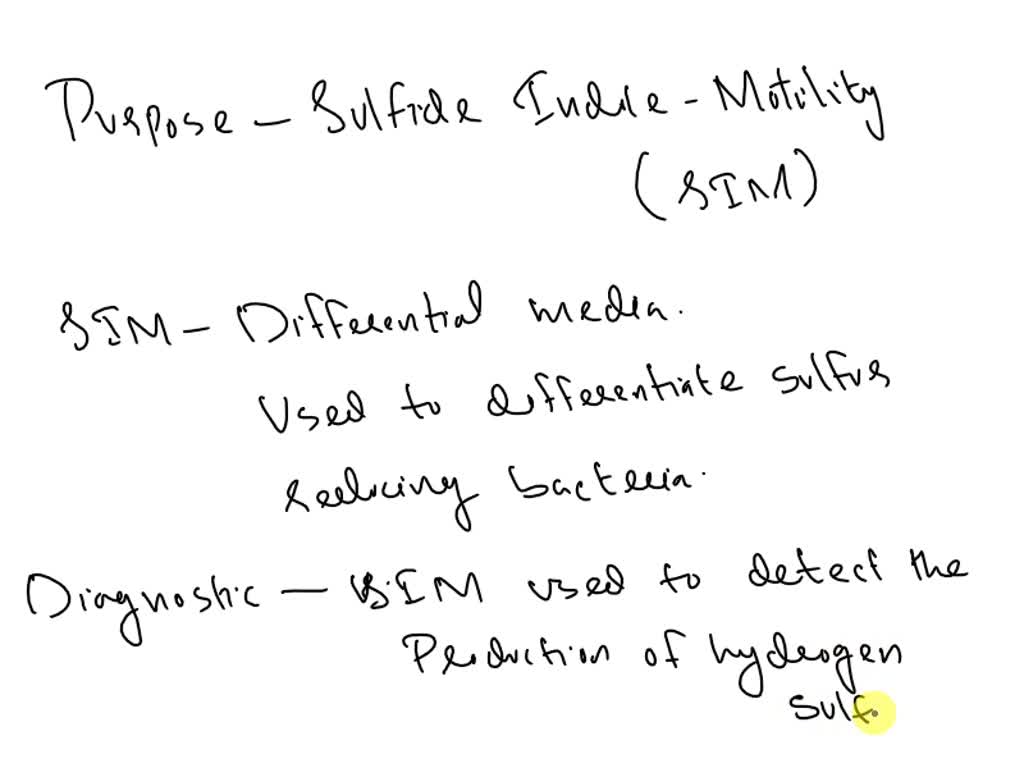 Purpose - Sulfide Indole - Motility
(SIM)
SIM - Differential media.
Used to differentiate sulfur
reducing bacteria.
Diagnostic - SIM used to detect the
Production of hydrogen
sulf